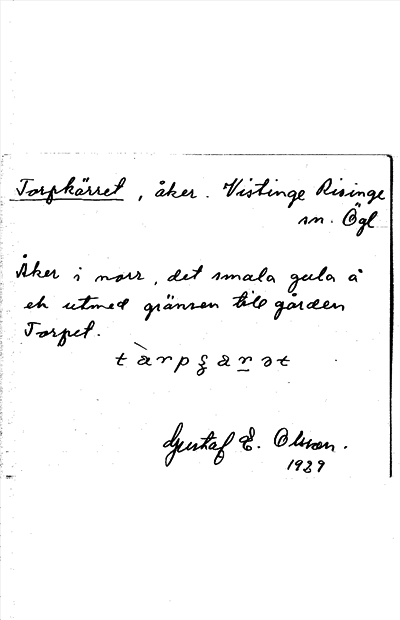 Torpkärret, åker. Vistinge Risinge
sn. Ögl
Åker i norr, det smala gula å
ek utmed gränsen till gården
Torpet.
Gustaf E. Olsson.
1929